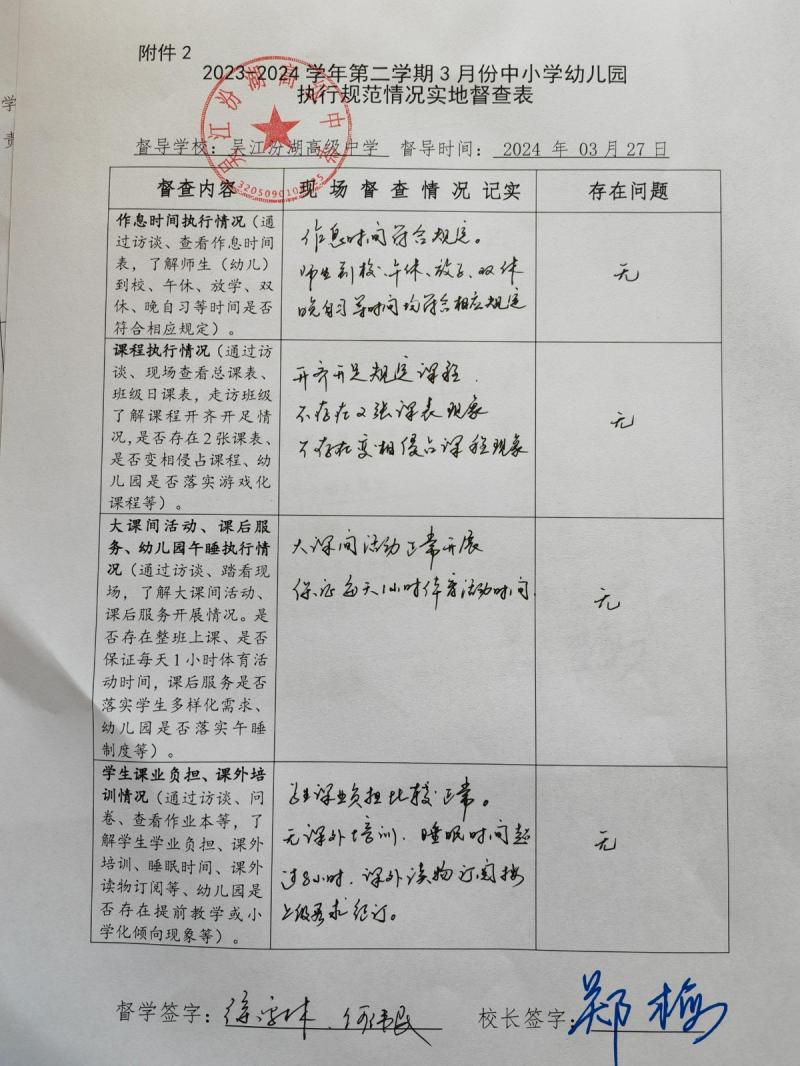 附件2
2023-2024学年第二学期3月份中小学幼儿园
执行规范情况实地督查表
督导学校：吴江汾湖高级中学 督导时间：2024 年 03 月 27 日
督查内容 现场督查情况记实 存在问题
作息时间执行情况（通
过访谈、查看作息时间
表，了解师生（幼儿）
到校、午休、放学、双
休、晚自习等时间是否
符合相应规定）。
作息时间符合规定。
师生到校、午休、放学、双休
晚自习等时间均符合相应规定
无
课程执行情况（通过访
谈、现场查看总课表、
班级日课表，走访班级
了解课程开齐开足情
况,是否存在2张课表、
是否变相侵占课程、幼
儿园是否落实游戏化
课程等）。
开齐开足规定课程.
不存在2张课表现象
不存在变相侵占课程现象
无
大课间活动、课后服
务、幼儿园午睡执行情
况（通过访谈、踏看现
场，了解大课间活动、
课后服务开展情况。是
否存在整班上课、是否
保证每天1小时体育活
动时间，课后服务是否
落实学生多样化需求、
幼儿园是否落实午睡
制度等）。
大课间活动正常开展
保证每天1小时体育活动时间.
无
学生课业负担、课外培
训情况（通过访谈、问
卷、查看作业本等，了
解学生学业负担、课外
培训、睡眠时间、课外
读物订阅等、幼儿园是
否存在提前教学或小
学化倾向现象等）。
学生课业负担比较正常。
无课外培训.睡眠时间超
过8小时.课外读物订阅按
上级要求征订。
无
督学签字： 校长签字：郑梅
吴江汾湖高级中学
学
责